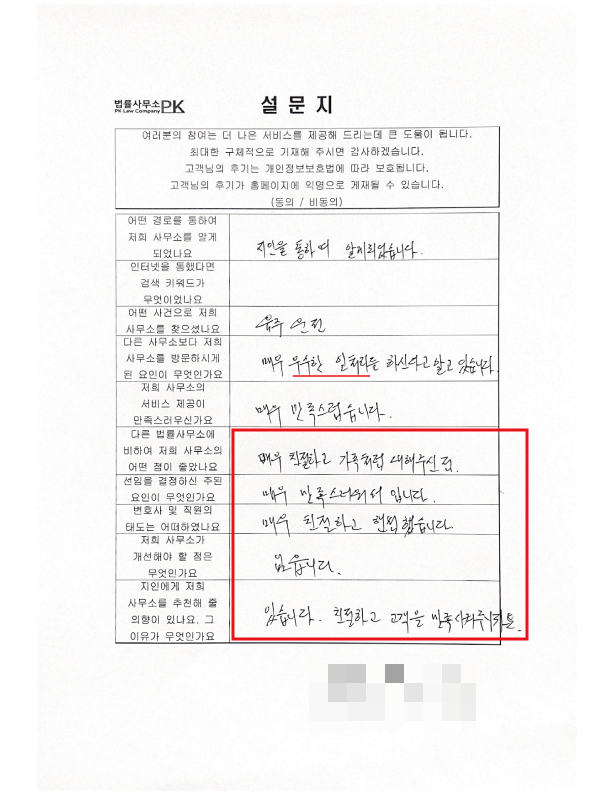 법률사무소 PK
PK Law Company
설문지
여러분의 참여는 더 나은 서비스를 제공해 드리는데 큰 도움이 됩니다.
최대한 구체적으로 기재해 주시면 감사하겠습니다.
고객님의 후기는 개인정보보호법에 따라 보호됩니다.
고객님의 후기가 홈페이지에 익명으로 게재될 수 있습니다.
(동의 / 비동의)
어떤 경로를 통하여
저희 사무소를 알게
되었나요
지인을 통하여 알게되었습니다.
인터넷을 통했다면
검색 키워드가
무엇이었나요
어떤 사건으로 저희
사무소를 찾으셨나요
음주 운전
다른 사무소보다 저희
사무소를 방문하시게
된 요인이 무엇인가요
매우 우수한 일처리를 하신다고 알고 있습니다.
저희 사무소의
서비스 제공이
만족스러우신가요
매우 만족스럽습니다.
다른 법률사무소에
비하여 저희 사무소의
어떤 점이 좋았나요
매우 친절하고 가족처럼 대해주신 점.
선임을 결정하신 주된
요인이 무엇인가요
매우 만족스러워서 입니다.
변호사 및 직원의
태도는 어떠하였나요
매우 친절하고 했습니다
저희 사무소가
개선해야 할 점은
무엇인가요
없습니다.
지인에게 저희
사무소를 추천해 줄
의향이 있나요. 그
이유가 무엇인가요
있습니다. 친절하고 고객을